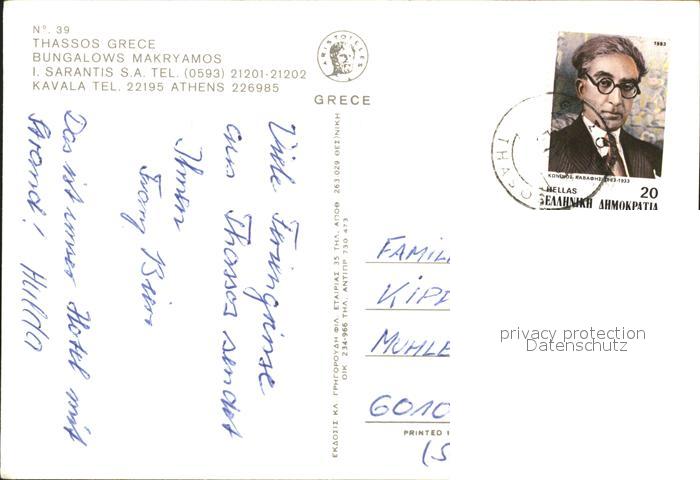 Nº. 39
THASSOS GRECE
BUNGALOWS MAKRYAMOS
I. SARANTIS S.A. TEL. (0593) 21201-21202
KAVALA TEL. 22195 ATHENS 226985
ARISTOTELES
GRECE
1983
ΚΩΝ/ΝΟΣ ΚΑΒΑΦΗΣ 1863-1933
HELLAS 20
ΕΛΛΗΝΙΚΗ ΔΗΜΟΚΡΑΤΙΑ
Viele Feriengrüsse
aus Thassos sendet
Ihnen
Franz
Das ist unser Hotel mit
Strand! Hulda
ΕΚΔΟΣΙΣ ΚΛ. ΓΡΗΓΟΡΟΥΔΗ ΦΙΛ. ΕΤΑΙΡΙΑΣ 35 ΤΗΛ. ΑΠΟΘ. 263.029 ΘΕΣ)ΝΙΚΗ
ΟΙΚ. 234-966 ΤΗΛ. ΑΝΤΙΠΡ 730 473
FAMIL
KIPF
MUHLE
PRINTED
privacy protection
Datenschutz